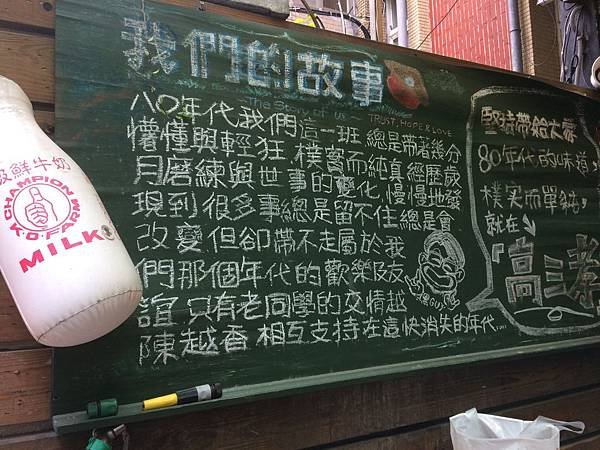 我們的故事
~ The Story of us ~
TRUST, HOPE & LOVE
八〇年代我們這一班 總是帶著幾分
懵懂與輕狂 樸實而純真 經歷歲
月磨練與世事的變化,慢慢地發
現到很多事總是留不住總是會
改變但卻帶不走屬於我
們那個年代的歡樂及友
誼 只有老同學的交情越
陳越香 相互支持在這快消失的年代...
堅持帶給大家
80年代的味道,
樸實而單純,
就在
高三孝
級鮮牛奶
CHAMPION
Y.O. FARM
MILK